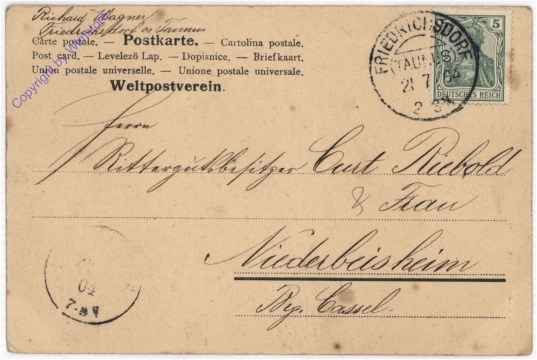 Richard Wagner
Friedrichsdorf Taunus
Carte postale, — Postkarte. — Cartolina postale,
Post card, — Levelező Lap. — Dopisnice, — Briefkaart,
Union postale universelle, — Unione postale universale,
Weltpostverein.
FRIEDRICHSDORF
(TAUNUS)
7 04
5
DEUTSCHES REICH
Herrn
Rittergutsbesitzer Curt Riebold
& Frau
Niederbeisheim
Bez. Cassel.
04
7-8V
Copyright by